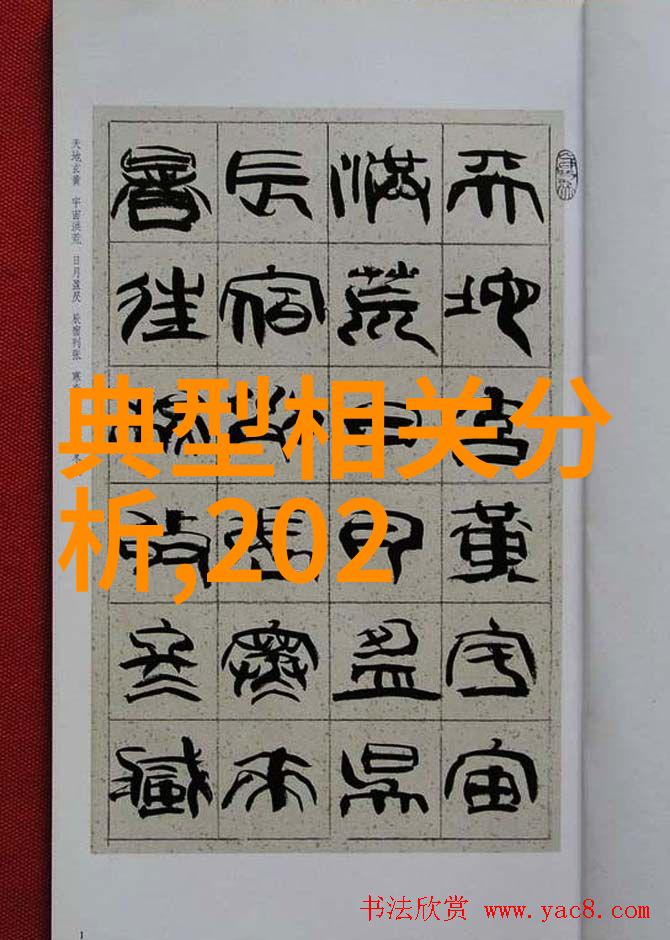 天地玄黄宇宙
洪荒日月盈昃
辰宿列張寒來
暑往秋收冬藏
天地玄黄 宇宙洪荒 日月盈昃 辰宿列张 寒
典型相关分
析,202
1
书法欣赏 www.yac8.com